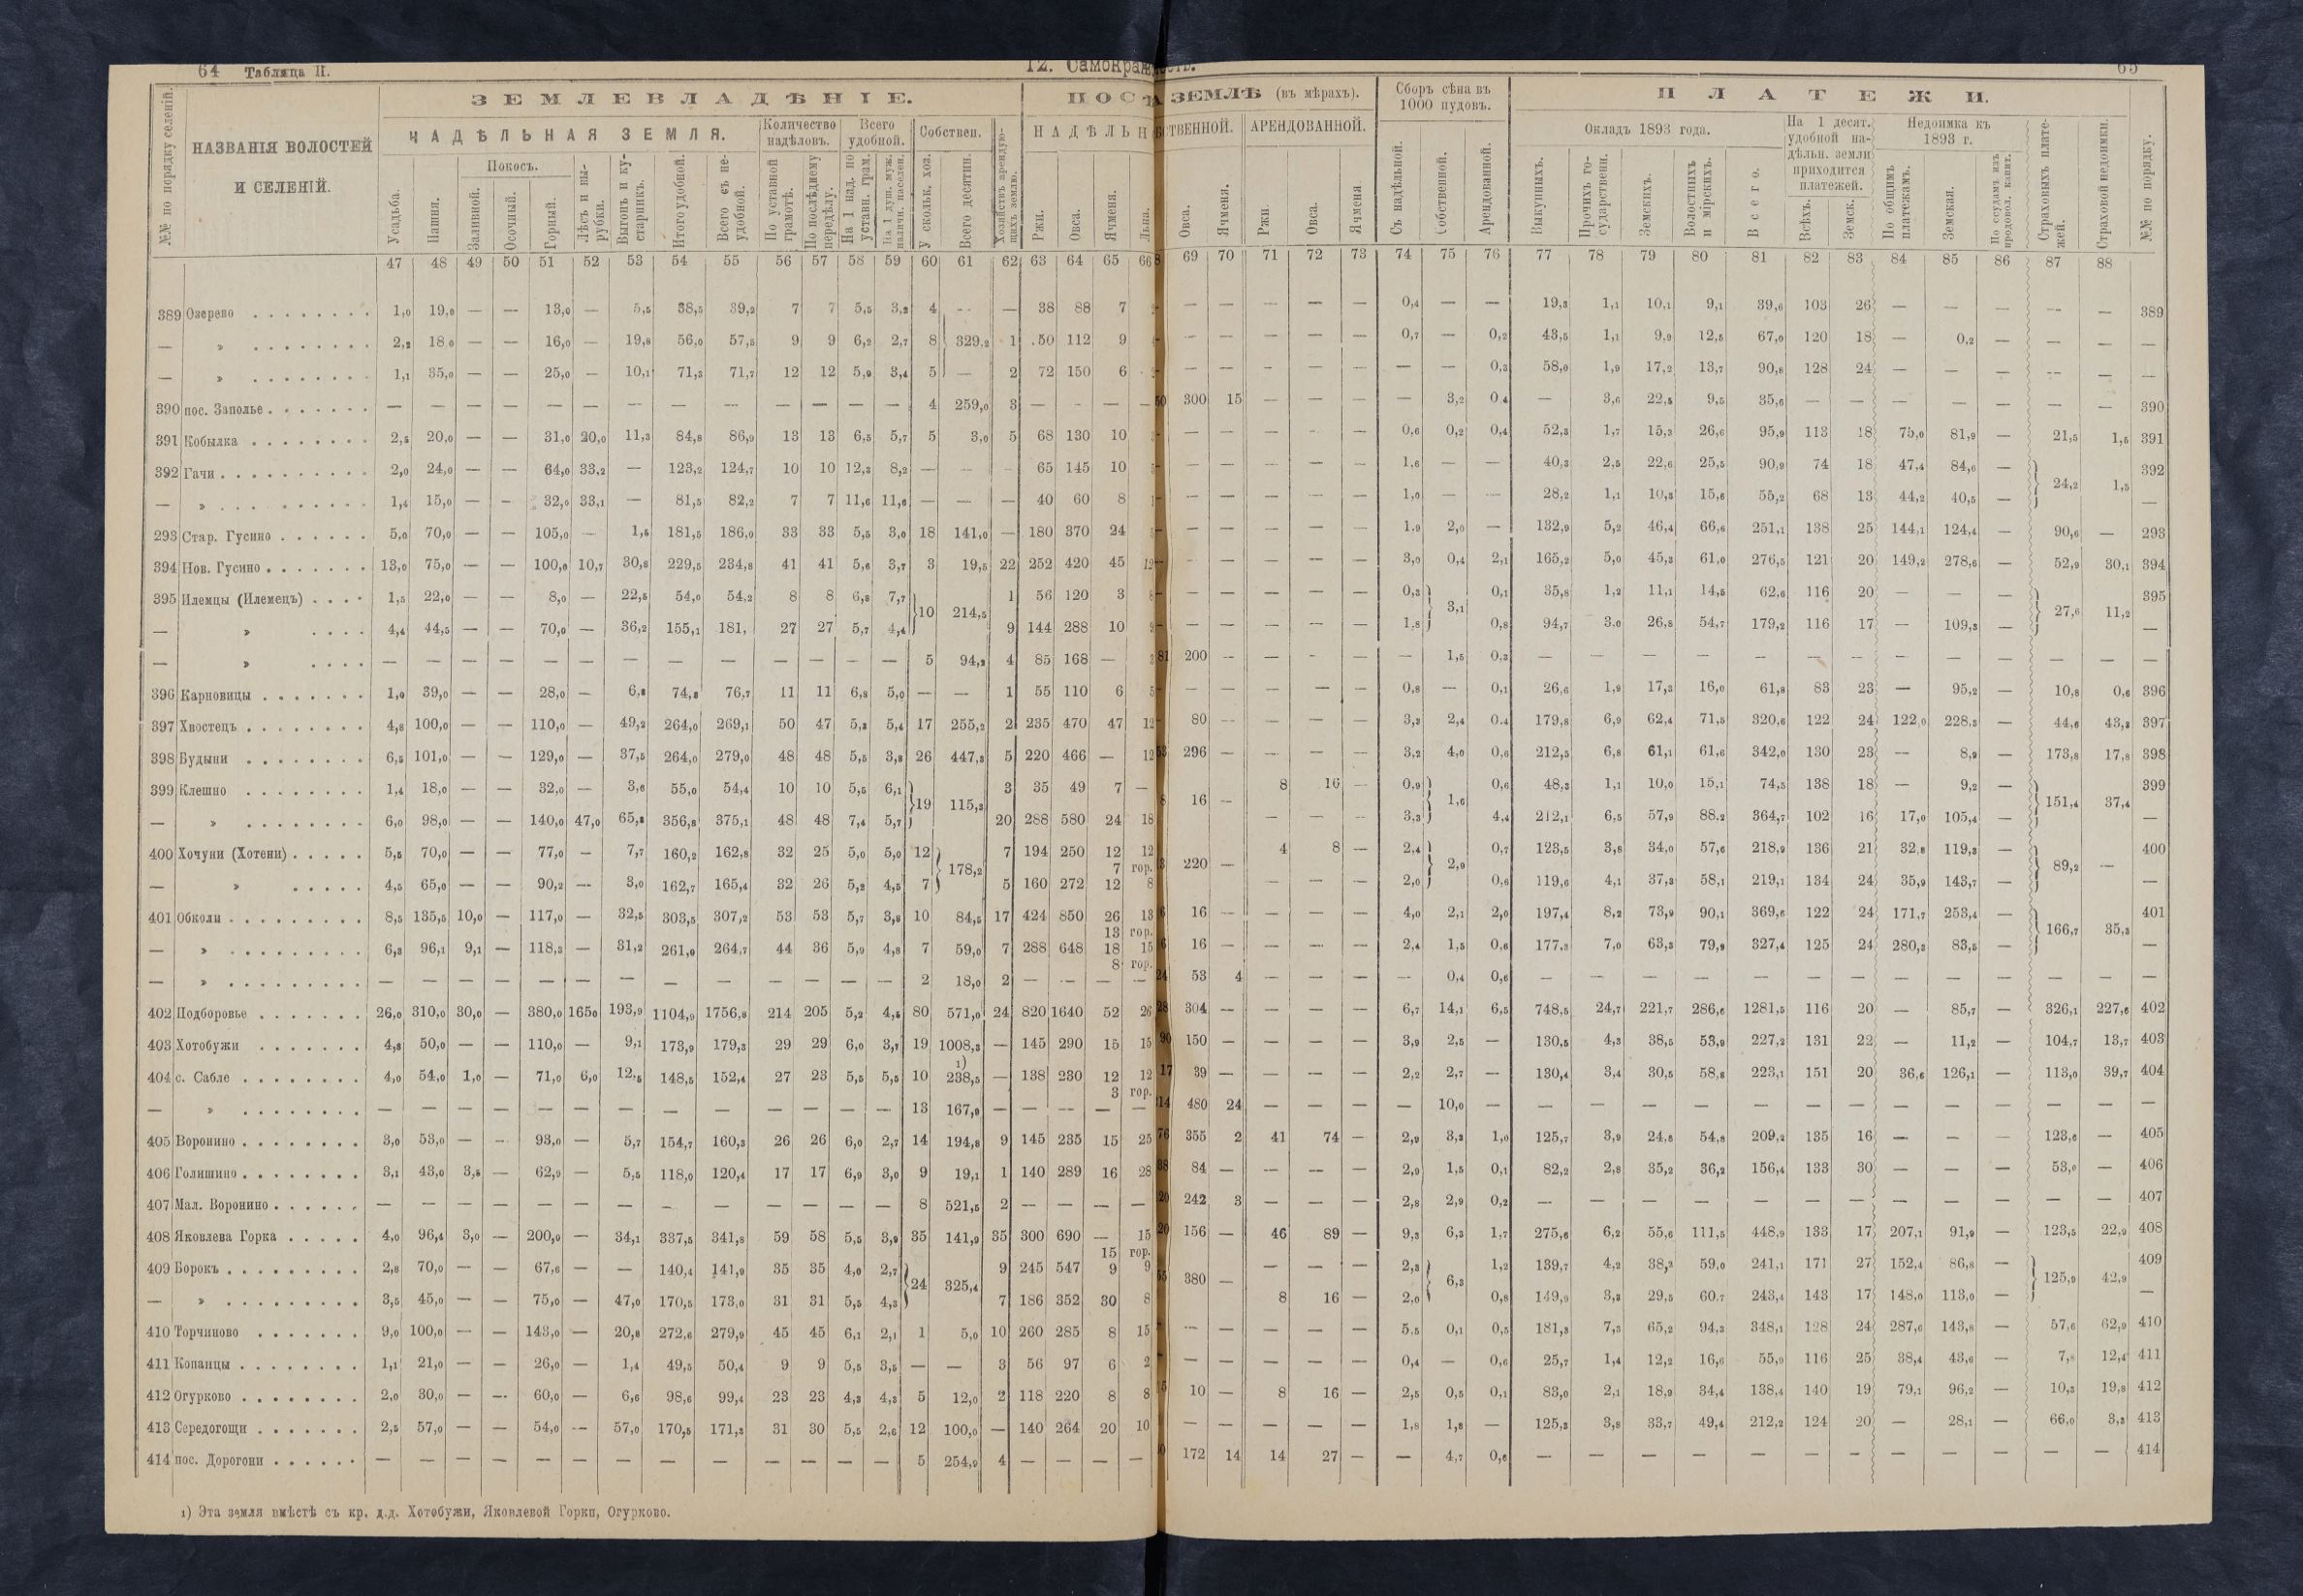 64 Таблица II.
12. Самокраж
ЗЕМЛЕВЛАДѢНІЕ.
НАДѢЛЬНАЯ ЗЕМЛЯ.
№№ по порядку селеній.
НАЗВАНІЯ ВОЛОСТЕЙ И СЕЛЕНІЙ.
Усадьба. Пашня. Покосъ. Заливной. Осочный. Горный. Лѣсъ и вырубки. Выгонъ и кустарникъ. Итого удобной. Всего съ неудобной.
Количество надѣловъ. По уставной грамотѣ. По послѣднему передѣлу.
Всего удобной. На 1 над. по уставн. грам. На 1 душ. муж. наличн. населен.
Собствен. У скольк. хоз. Всего десятин. Хозяйствъ арендующихъ землю.
НАДѢЛЬН
Ржи. Овса. Ячменя. Льна.
47 48 49 50 51 52 53 54 55 56 57 58 59 60 61 62 63 64 65 66
389 Озерево 1,0 19,0 — — 13,0 — 5,5 38,5 39,2 7 7 5,5 3,2 4 — — 38 88 7
— » 2,2 18,0 — — 16,0 — 19,8 56,0 57,5 9 9 6,2 2,7 8 329,2 1 50 112 9
— » 1,1 35,0 — — 25,0 — 10,1 71,3 71,7 12 12 5,9 3,4 5 — 2 72 150 6
390 пос. Заполье — — — — — — — — — — — — — 4 259,0 3 — — — —
391 Кобылка 2,5 20,0 — — 31,0 20,0 11,3 84,8 86,9 13 13 6,5 5,7 5 3,0 5 68 130 10
392 Гачи 2,0 24,0 — — 64,0 33,2 — 123,2 124,7 10 10 12,3 8,2 — — — 65 145 10
— » 1,4 15,0 — — 32,0 33,1 — 81,5 82,2 7 7 11,6 11,6 — — — 40 60 8
293 Стар. Гусино 5,0 70,0 — — 105,0 — 1,5 181,5 186,0 33 33 5,5 3,0 18 141,0 — 180 370 24
394 Нов. Гусино 13,0 75,0 — — 100,0 10,7 30,8 229,5 234,8 41 41 5,6 3,7 3 19,5 22 252 420 45 12
395 Илемцы (Илемецъ) 1,5 22,0 — — 8,0 — 22,5 54,0 54,2 8 8 6,8 7,7 10 214,5 1 56 120 3
— » 4,4 44,5 — — 70,0 — 36,2 155,1 181, 27 27 5,7 4,4 9 144 288 10
— » — — — — — — — — — — — — — 5 94,3 4 85 168 —
396 Карповицы 1,0 39,0 — — 28,0 — 6,8 74,8 76,7 11 11 6,8 5,0 — — 1 55 110 6 5
397 Хвостецъ 4,8 100,0 — — 110,0 — 49,2 264,0 269,1 50 47 5,3 5,4 17 255,2 2 235 470 47 12
398 Будыни 6,5 101,0 — — 129,0 — 37,5 264,0 279,0 48 48 5,5 3,8 26 447,3 5 220 466 — 12
399 Клешно 1,4 18,0 — — 32,0 — 3,6 55,0 54,4 10 10 5,5 6,1 19 115,3 3 35 49 7 —
— » 6,0 98,0 — — 140,0 47,0 65,8 356,8 375,1 48 48 7,4 5,7 20 288 580 24 18
400 Хочуни (Хотени) 5,5 70,0 — — 77,0 — 7,7 160,2 162,8 32 25 5,0 5,0 12 178,2 7 194 250 12 12
7 гор.
— » 4,5 65,0 — — 90,2 — 3,0 162,7 165,4 32 26 5,2 4,5 7 5 160 272 12 8
401 Обколи 8,5 135,5 10,0 — 117,0 — 32,5 303,5 307,2 53 53 5,7 3,8 10 84,5 17 424 850 26 13
13 гор.
— » 6,3 96,1 9,1 — 118,3 — 31,2 261,0 264,7 44 36 5,9 4,8 7 59,0 7 288 648 18 15
8 гор.
— » — — — — — — — — — — — — — 2 18,0 2 — — — —
402 Подборовье 26,0 310,0 30,0 — 380,0 165,0 193,9 1104,9 1756,8 214 205 5,2 4,5 80 571,0 24 820 1640 52 26
403 Хотобужи 4,8 50,0 — — 110,0 — 9,1 173,9 179,3 29 29 6,0 3,7 19 1008,3 — 145 290 15 15
404 с. Сабле 4,0 54,0 1,0 — 71,0 6,0 12,5 148,5 152,4 27 23 5,5 5,5 10 1) 238,5 — 138 230 12 12
3 гор.
— » — — — — — — — — — — — — — 13 167,9 — — — — —
405 Воронино 3,0 53,0 — — 93,0 — 5,7 154,7 160,3 26 26 6,0 2,7 14 194,8 9 145 235 15 25
406 Голишино 3,1 43,0 3,8 — 62,9 — 5,5 118,0 120,4 17 17 6,9 3,0 9 19,1 1 140 289 16 28
407 Мал. Воронино — — — — — — — — — — — — — 8 521,5 2 — — — —
408 Яковлева Горка 4,0 96,4 3,0 — 200,0 — 34,1 337,5 341,8 59 58 5,5 3,9 35 141,9 35 300 690 — 15
15 гор.
409 Борокъ 2,8 70,0 — — 67,6 — — 140,4 141,9 35 35 4,0 2,7 24 325,4 9 245 547 9 9
— » 3,5 45,0 — — 75,0 — 47,0 170,5 173,0 31 31 5,5 4,3 7 186 352 30 8
410 Торчиново 9,0 100,0 — — 143,0 — 20,8 272,6 279,9 45 45 6,1 2,1 1 5,0 10 260 285 8 15
411 Копанцы 1,1 21,0 — — 26,0 — 1,4 49,5 50,4 9 9 5,5 3,5 — — 3 56 97 6 2
412 Огурково 2,0 30,0 — — 60,0 — 6,6 98,6 99,4 23 23 4,3 4,3 5 12,0 2 118 220 8 8
413 Середогощи 2,5 57,0 — — 54,0 — 57,0 170,5 171,3 31 30 5,5 2,6 12 100,0 — 140 264 20 10
414 пос. Дорогони — — — — — — — — — — — — — 5 254,9 4 — — — —
1) Эта земля вмѣстѣ съ кр. д.д. Хотобужи, Яковлевой Горки, Огурково.
65
ЗЕМЛѢ (въ мѣрахъ).
СТВЕННОЙ. АРЕНДОВАННОЙ.
Овса. Ячменя. Ржи. Овса. Ячменя.
Сборъ сѣна въ 1000 пудовъ.
Съ надѣльной. Собственной. Арендованной.
ПЛАТЕЖИ.
Окладъ 1893 года.
Выкупныхъ. Прочихъ государственн. Земскихъ. Волостныхъ и мірскихъ. Всего.
На 1 десят. удобной надѣльн. земли приходится платежей. Всѣхъ. Земск.
Недоимка къ 1893 г. По общимъ платежамъ. Земская. По ссудамъ изъ продовол. капит.
Страховыхъ платежей. Страховой недоимки. №№ по порядку.
69 70 71 72 73 74 75 76 77 78 79 80 81 82 83 84 85 86 87 88
— — — — — 0,4 — — 19,3 1,1 10,1 9,1 39,6 103 26 — — — — — 389
— — — — — 0,7 — 0,2 43,5 1,1 9,9 12,5 67,0 120 18 — 0,2 — — — —
— — — — — — — 0,3 58,0 1,9 17,2 13,7 90,8 128 24 — — — — — —
300 15 — — — — 3,2 0,4 — 3,6 22,5 9,5 35,6 — — — — — — — 390
— — — — — 0,6 0,2 0,4 52,3 1,7 15,3 26,6 95,9 113 18 75,0 81,9 — 21,5 1,5 391
— — — — — 1,6 — — 40,3 2,5 22,6 25,5 90,9 74 18 47,4 84,6 — 24,2 1,5 392
— — — — — 1,0 — — 28,2 1,1 10,3 15,6 55,2 68 13 44,2 40,5 — —
— — — — — 1,9 2,0 — 132,9 5,2 46,4 66,6 251,1 138 25 144,1 124,4 — 90,6 — 293
— — — — — 3,0 0,4 2,1 165,2 5,0 45,3 61,0 276,5 121 20 149,2 278,6 — 52,9 30,1 394
— — — — — 0,3 3,1 0,1 35,8 1,2 11,1 14,5 62,6 116 20 — — — 27,6 11,2 395
— — — — — 1,8 0,8 94,7 3,0 26,8 54,7 179,2 116 17 — 109,3 — —
200 — — — — — 1,5 0,3 — — — — — — — — — — — — —
— — — — — 0,8 — 0,1 26,6 1,9 17,3 16,0 61,8 83 23 — 95,2 — 10,8 0,6 396
80 — — — — 3,3 2,4 0,4 179,8 6,9 62,4 71,5 320,6 122 24 122,0 228,3 — 44,6 43,2 397
296 — — — — 3,2 4,0 0,6 212,5 6,8 61,1 61,6 342,0 130 23 — 8,9 — 173,8 17,8 398
16 — 8 16 — 0,9 1,6 0,6 48,3 1,1 10,0 15,1 74,5 138 18 — 9,2 — 151,4 37,4 399
— — — 3,3 4,4 212,1 6,5 57,9 88,2 364,7 102 16 17,0 105,4 — —
220 — 4 8 — 2,4 2,9 0,7 123,5 3,8 34,0 57,6 218,9 136 21 32,8 119,3 — 89,2 — 400
— — — 2,0 0,6 119,6 4,1 37,3 58,1 219,1 134 24 35,9 143,7 — —
16 — — — — 4,0 2,1 2,0 197,4 8,2 73,9 90,1 369,6 122 24 171,7 253,4 — 166,7 35,3 401
16 — — — — 2,4 1,5 0,6 177,3 7,0 63,3 79,8 327,4 125 24 280,3 83,5 — —
53 4 — — — — 0,4 0,6 — — — — — — — — — — — — —
304 — — — — 6,7 14,1 6,5 748,5 24,7 221,7 286,6 1281,5 116 20 — 85,7 — 326,1 227,6 402
150 — — — — 3,9 2,5 — 130,5 4,3 38,5 53,9 227,2 131 22 — 11,2 — 104,7 13,7 403
39 — — — — 2,2 2,7 — 130,4 3,4 30,5 58,8 223,1 151 20 36,6 126,1 — 113,0 39,7 404
480 24 — — — — 10,0 — — — — — — — — — — — — — —
355 2 41 74 — 2,9 3,3 1,0 125,7 3,9 24,8 54,8 209,2 135 16 — — — 123,6 — 405
84 — — — — 2,9 1,5 0,1 82,2 2,8 35,2 36,2 156,4 133 30 — — — 53,0 — 406
242 3 — — — 2,8 2,9 0,2 — — — — — — — — — — — — 407
156 — 46 89 — 9,3 6,3 1,7 275,6 6,2 55,6 111,5 448,9 133 17 207,1 91,9 — 123,5 22,9 408
380 — — — — 2,3 6,3 1,2 139,7 4,2 38,2 59,0 241,1 171 27 152,4 86,8 — 125,9 42,9 409
8 16 — 2,0 0,8 149,9 3,3 29,5 60,7 243,4 143 17 148,0 113,0 — —
— — — — — 5,5 0,1 0,5 181,3 7,3 65,2 94,3 348,1 128 24 287,6 143,8 — 57,6 62,9 410
— — — — — 0,4 — 0,6 25,7 1,4 12,2 16,6 55,9 116 25 38,4 43,6 — 7,8 12,4 411
10 — 8 16 — 2,5 0,5 0,1 83,0 2,1 18,9 34,4 138,4 140 19 79,1 96,2 — 10,3 19,8 412
— — — — — 1,8 1,8 — 125,3 3,8 33,7 49,4 212,2 124 20 — 28,1 — 66,0 3,3 413
172 14 14 27 — — 4,7 0,6 — — — — — — — — — — — — 414